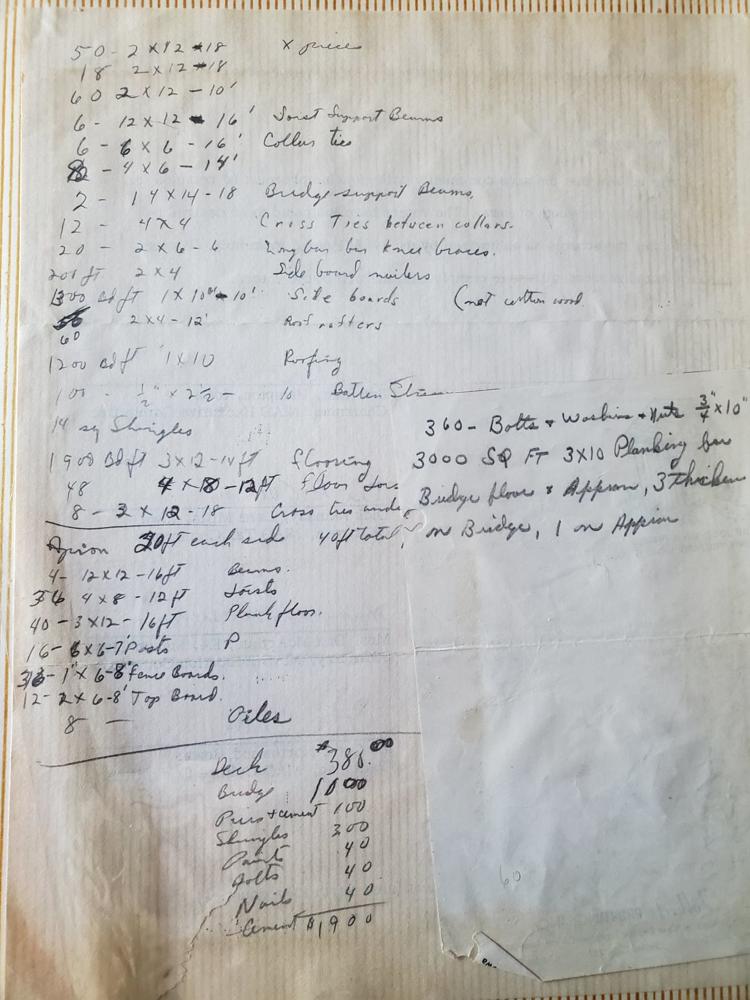 50 - 2 x 12 - 18 x pieces
18 2 x 12 - 18
60 2 x 12 - 10'
6 - 12 x 12 - 16' Joist Support Beams
6 - 6 x 6 - 16' Collar ties
- 4 x 6 - 14'
2 - 14 x 14 - 18 Bridge support Beams.
12 - 4 x 4 Cross Ties between collars.
20 - 2 x 6 - 6 knee braces.
200 ft 2 x 4 Side board nailers
1300 Bd ft 1 x 10" - 10' Side boards (not cotton wood
60 2 x 4 - 12' Roof rafters
1200 Bd ft 1 x 10 Roofing
100 - 1/2" x 2 1/2 - 10 Batten
14 sq Shingles
1900 Bd ft 3 x 12 - 14 ft flooring
48 4 x 8 - 12 ft Floor Jois
8 - 3 x 12 - 18 Cross ties unde
Aprion 20 ft each side 40 ft total
4 - 12 x 12 - 16 ft Beams.
36 4 x 8 - 12 ft Joists
40 - 3 x 12 - 16 ft Plank floor.
16 - 6 x 6 - 7' Posts P
1" x 6 - 8' Fence Boards.
12 - 2 x 6 - 8' Top Board.
8 — Piles
360 - Bolts & Washers & Nuts 3/4" x 10"
3000 SQ FT 3X10 Planking for
Bridge floor & Apprion, 3 thick
on Bridge, 1 on Apprion
Deck $380.00
Bridge 1000
Piers + cement 100
Shingles 300
Paint 40
Bolts 40
Nails 40
Cement $1900
60